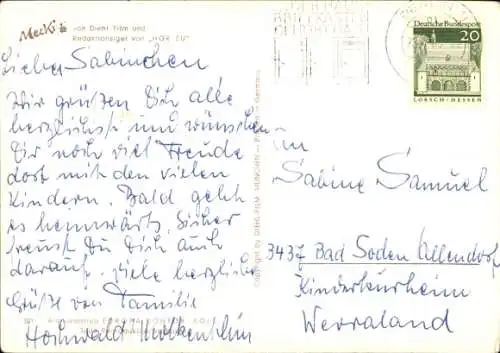 Mecki
von Diehl Film und
Redaktionsigel von „HÖR ZU"
Liebes Sabinchen
Wir grüßen Dich alle
herzlichst und wünschen
Dir noch viel Freude
dort mit den vielen
Kindern. Bald geht
es heimwärts. Sicher
freust Du Dich auch
darauf. Viele herzliche
Grüße von Familie
Hochwald
Deutsche Bundespost
20
LORSCH · HESSEN
Copyright by DIEHL-FILM MÜNCHEN
Sabine Samuel
3437 Bad Soden Allendorf
Kinderkurheim
Werraland